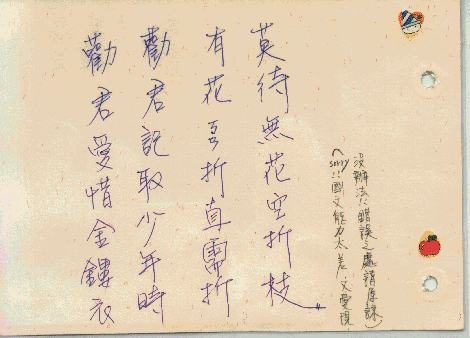 勸君愛惜金鏤衣
勸君記取少年時
有花折直需折
莫待無花空折枝
(sorry!! 國文能力太差,又愛現
沒辦法!! 錯誤之處請原諒)